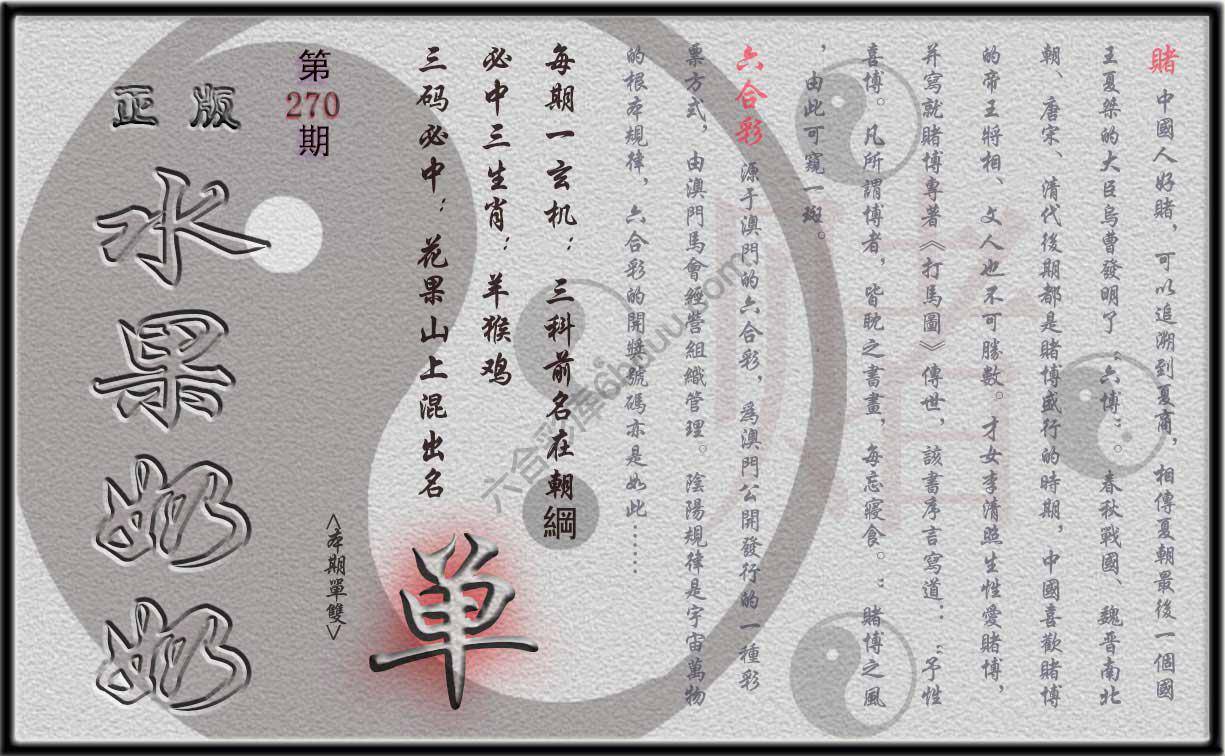 賭 中國人好賭，可以追溯到夏商，相傳夏朝最後一個國
王夏桀的大臣烏曹發明了“六博”。春秋戰國、魏晋南北
朝、唐宋、清代後期都是賭博盛行的時期，中國喜歡賭博
的帝王將相、文人也不可勝數。才女李清照生性愛賭博，
并寫就賭博專著《打馬圖》傳世，該書序言寫道：“予性
喜博。凡所謂博者，皆眈之書畫，每忘寢食。：賭博之風
，由此可窺一斑。
六合彩 源于澳門的六合彩，爲澳門公開發行的一種彩
票方式，由澳門馬會經營組織管理。陰陽規律是宇宙萬物
的根本規律，六合彩的開獎號碼亦是如此……
每期一玄机：三科前名在朝綱
必中三生肖：羊猴鸡
三码必中：花果山上混出名
<本期單雙>
单
第
270
期
正版
水果奶奶
賭
六合彩库6hduu.com